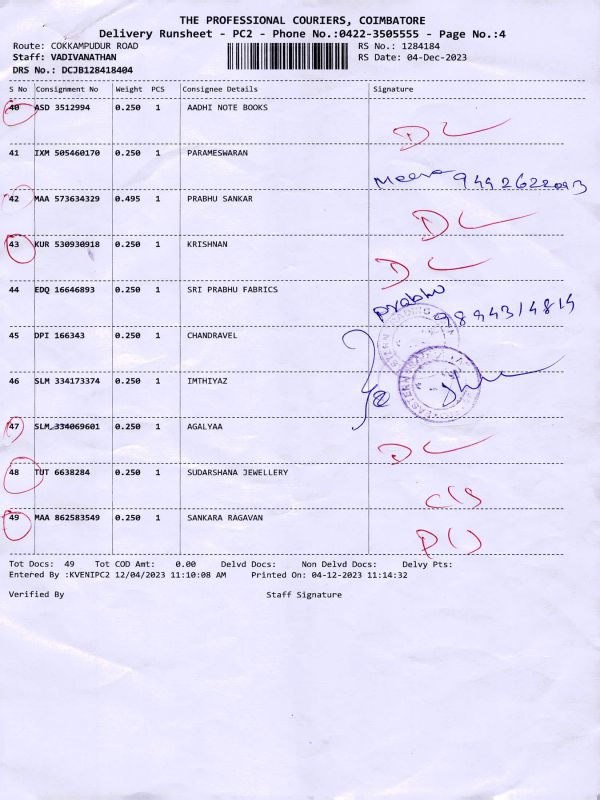 THE PROFESSIONAL COURIERS, COIMBATORE
Delivery Runsheet - PC2 - Phone No.:0422-3505555 - Page No.:4
Route: COKKAMPUDUR ROAD RS No.: 1284184
Staff: VADIVANATHAN RS Date: 04-Dec-2023
DRS No.: DCJB128418404
S No Consignment No Weight PCS Consignee Details Signature
40 ASD 3512994 0.250 1 AADHI NOTE BOOKS
DL
41 IXM 505460170 0.250 1 PARAMESWARAN
Meera
42 MAA 573634329 0.495 1 PRABHU SANKAR
DL
43 KUR 530930918 0.250 1 KRISHNAN
DL
44 EDQ 16646893 0.250 1 SRI PRABHU FABRICS
prabhu
9894314814
45 DPI 166343 0.250 1 CHANDRAVEL
46 SLM 334173374 0.250 1 IMTHIYAZ
47 SLM 334069601 0.250 1 AGALYAA
DL
48 TUT 6638284 0.250 1 SUDARSHANA JEWELLERY
cls
49 MAA 862583549 0.250 1 SANKARA RAGAVAN
Tot Docs: 49 Tot COD Amt: 0.00 Delvd Docs: Non Delvd Docs: Delvy Pts:
Entered By :KVENIPC2 12/04/2023 11:10:08 AM Printed On: 04-12-2023 11:14:32
Verified By Staff Signature